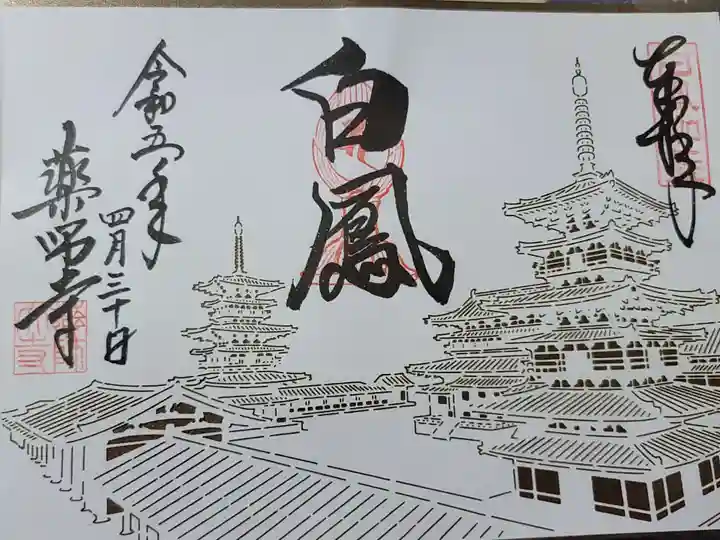 奉拝
白鳳
令和五年
四月三十日
薬師寺